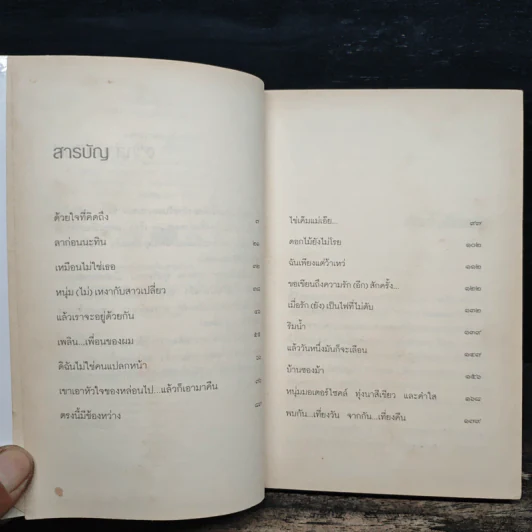 สารบัญ
ด้วยใจที่คิดถึง
ลาก่อนนะทิน
เหมือนไม่ใช่เธอ
หนุ่ม (ไม่) เหงากับสาวเปลี่ยว
แล้วเราจะอยู่ด้วยกัน
เพลิน...เพื่อนของผม
ดิฉันไม่ใช่คนแปลกหน้า
เขาเอาหัวใจของหล่อนไป...แล้วก็เอามาคืน
ตรงนี้มีช่องหว่าง
ไข่เค็มแม่เอ๊ย...
ดอกไม้ยังไม่โรย ๑๐๒
ฉันเพียงแต่ว้าเหว่ ๑๑๒
ขอเขียนถึงความรัก (อีก) สักครั้ง... ๑๒๒
เมื่อรัก (ยัง) เป็นไฟที่ไม่ดับ ๑๓๒
ริมน้ำ
แล้ววันหนึ่งมันก็จะเลือน ๑๔๗
บ้านของม้า ๑๕๖
หนุ่มมอเตอร์ไซคล์ ทุ่งนาสีเขียว และคำใส ๑๖๘
พบกัน...เที่ยงวัน จากกัน...เที่ยงคืน